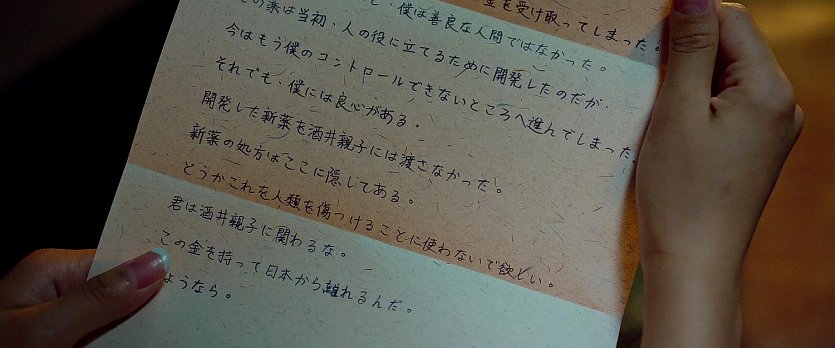 と、僕は善良な人間ではなかった。
金を受け取ってしまった。
この薬は当初、人の役に立てるために開発したのだが、
今はもう僕のコントロールできないところへ進んでしまった。
それでも、僕には良心がある。
開発した新薬を酒井親子には渡さなかった。
新薬の処方はここに隠してある。
どうかこれを人類を傷つけることに使わないで欲しい。
君は酒井親子に関わるな。
この金を持って日本から離れるんだ。
ようなら。